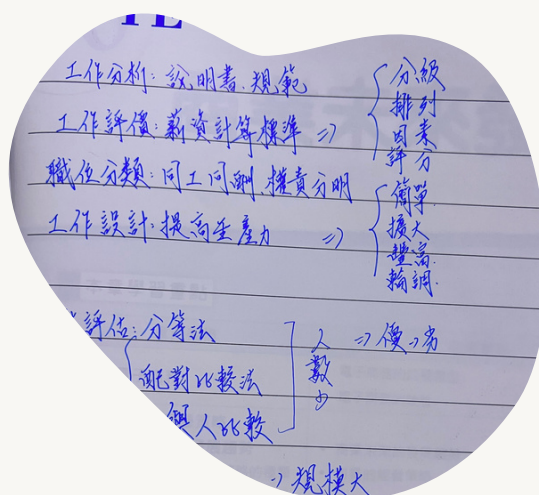 工作分析:說明書.規範
工作評價:薪資計算標準 => { 分級 排列 因素 評分
職位分類:同工同酬.權責分明
工作設計:提高生產力 => { 簡單 擴大 豐富 輪調
評估:分等法
配對比較法
與人比較
人數少 => 優→劣
→規模大